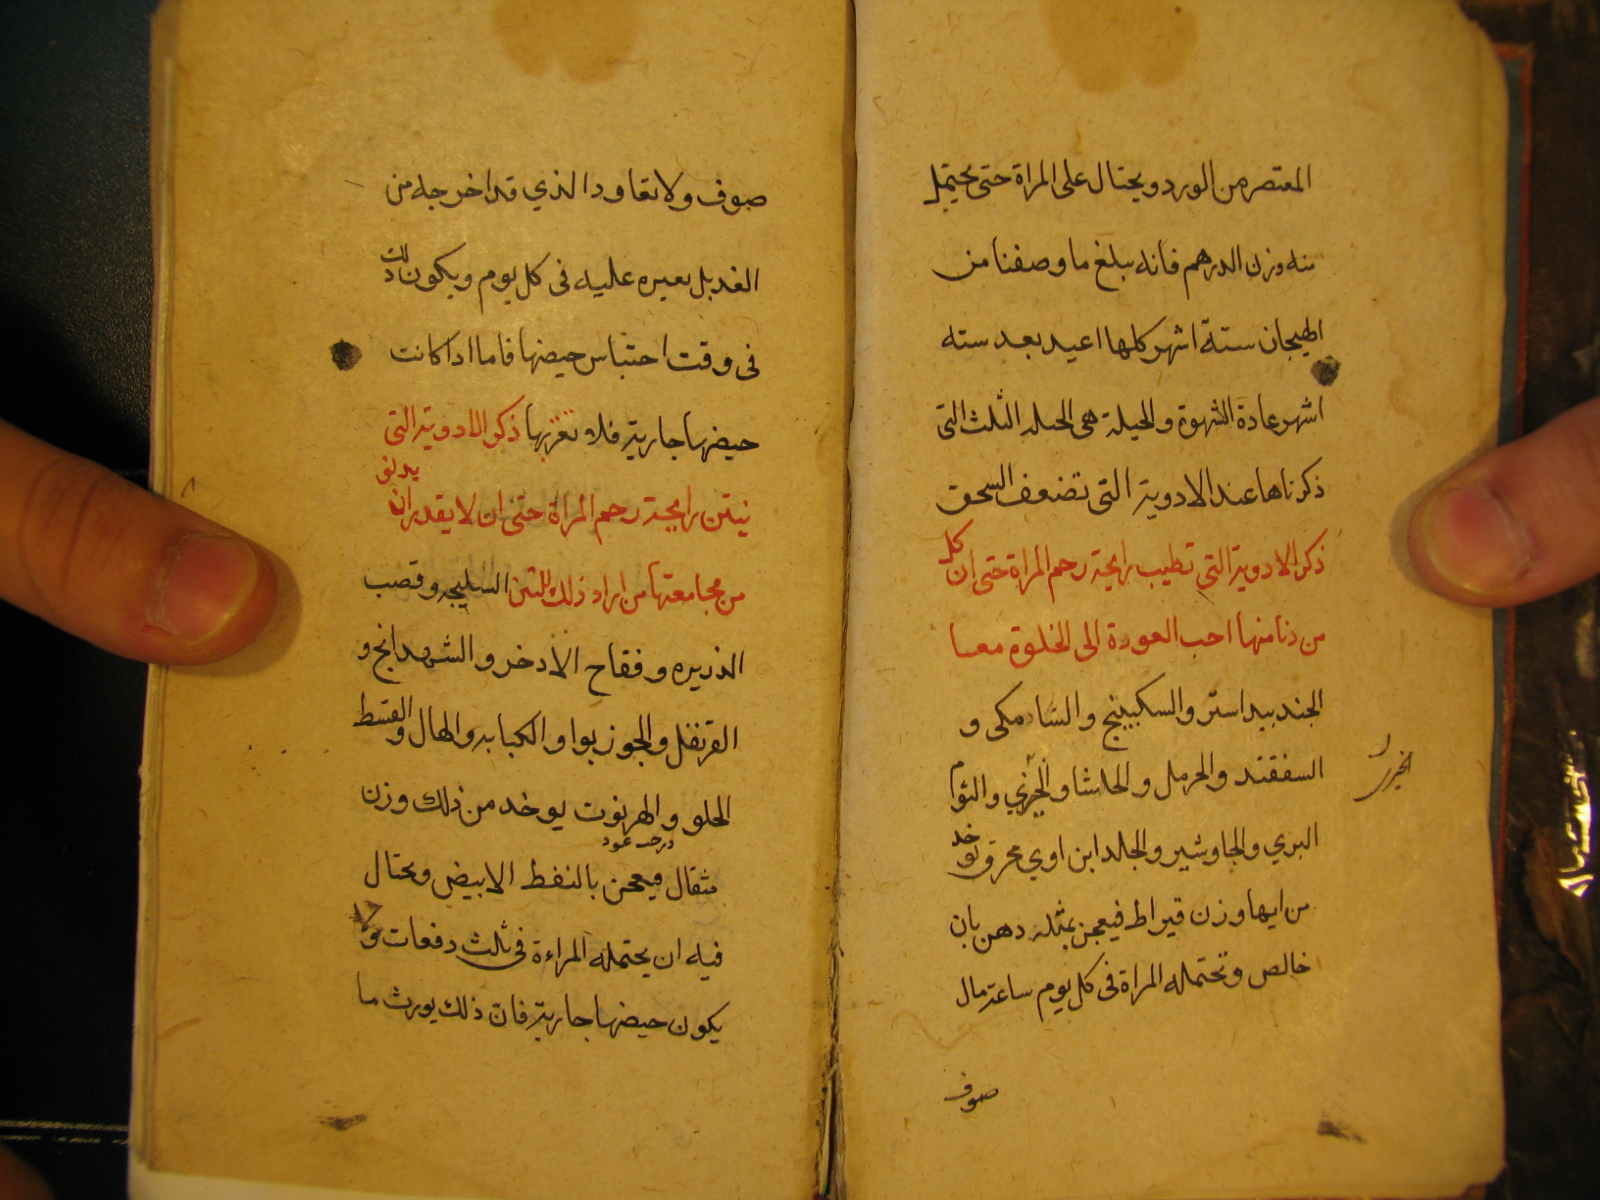 المعتصره من الورد ويحتال على المراة حتى يحتمل
منه وزن الدرهم فانه يبلغ ما وصفنا من
الهيجان ستة اشهر كلها اعيد بعد سته
اشهر عادة الشهوة والحيلة هى الحيله الثلث التى
ذكرناها عند الادوية التى تضعف السحق
ذكر الادوية التى تطيب رايحة رحم المراة حتى ان كل
من دنا منها احب العودة الى الخلوة معها
الجندبيداستر والسكبينج والشادمكى و
السفقند والحرمل و والجزري والثوم
الجزر
البري والجاوشير والجلد ابن اوي محرق يوخد
من ايها وزن قيراط فيعجن بمثله دهن بان
خالص وتحتمله المراة فى كل يوم ساعة مال
صوف
صوف ولا تعاود الذي قد اخرجله من
الغد بل بعيره عليه فى كل يوم ويكون ذلك
فى وقت احتباس حيضها فاما ادا كانت
حيضها جارية فلا تقربها ذكر الادوية التى
نيتن رايحة رحم المراة حتى ان لا يقدر ان يدنو
من مجامعتها من اراد ذلك للنتن السليجه وقصب
الذريره وفقاح الاذخر والشهدانج و
القرنفل والجوز بوا والكبابه والهال والقسط
الحلو والهرنوت يوخد من ذلك وزن
درحب عود
مثقال فيعجن بالنفط الابيض ويحتال
فيه ان يحتمله المراءة فى ثلث دفعات و
يكون حيضها جارية فان ذلك يورث ما